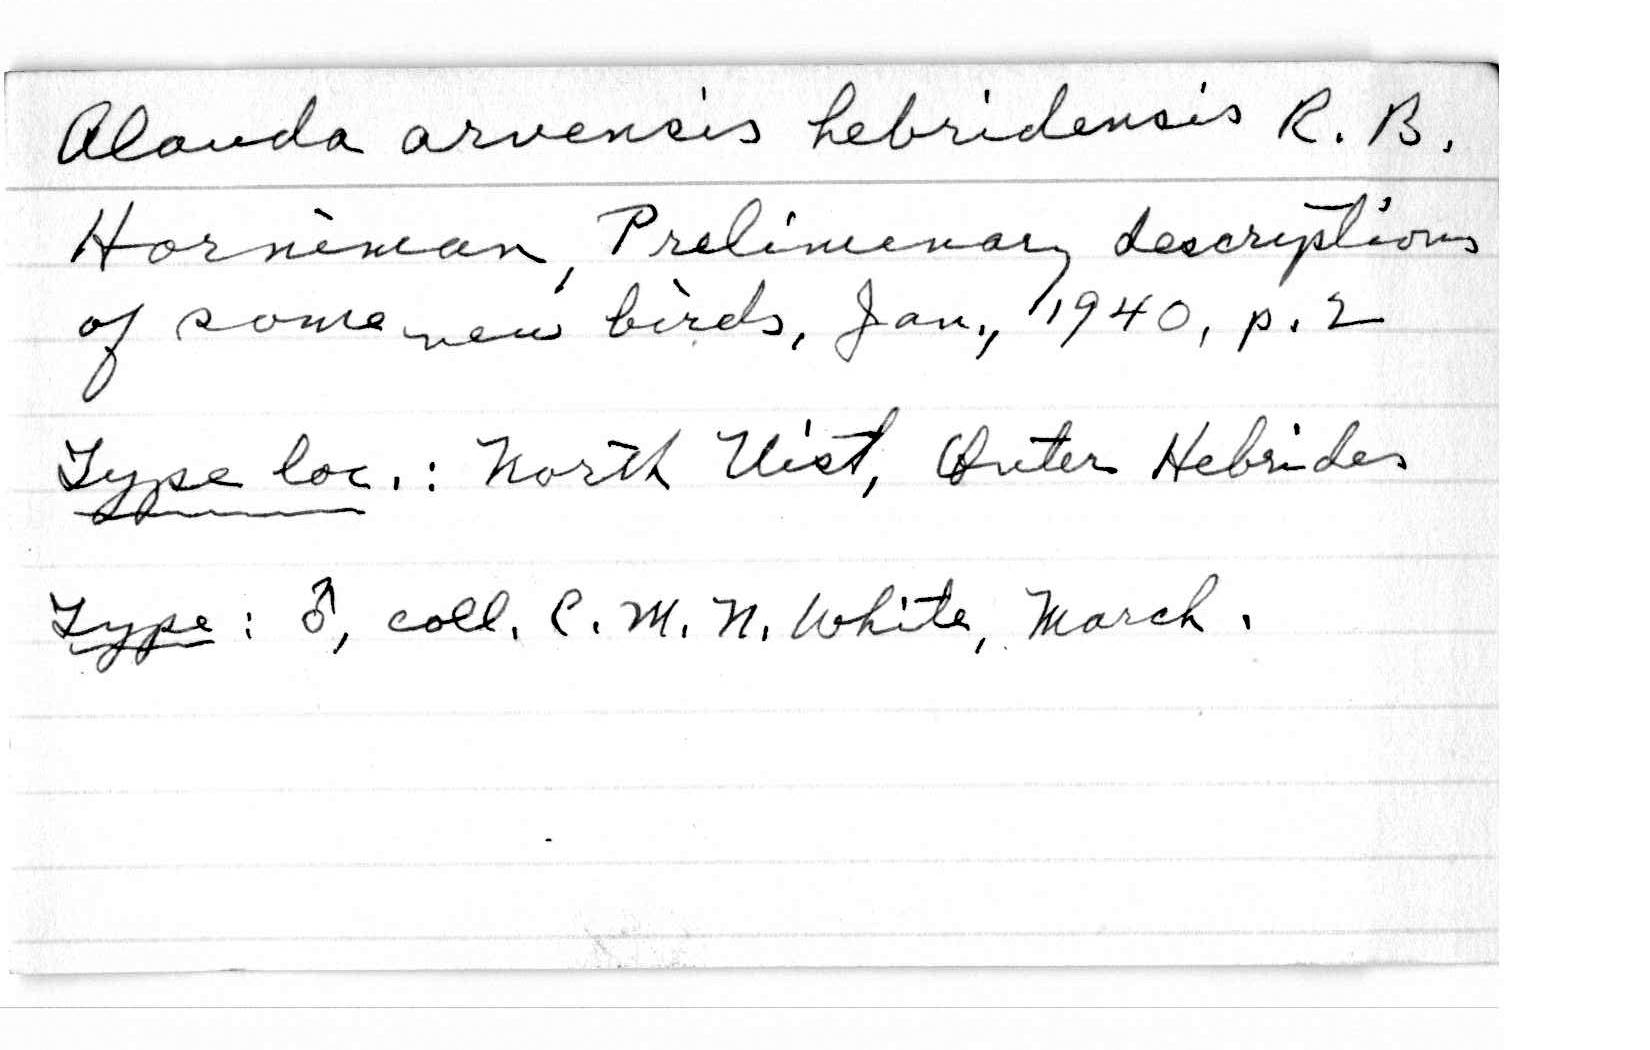 Alauda arvensis hebridensis R. B.
Horniman, Preliminary descriptions
of some new birds, Jan., 1940, p. 2
Type loc.: North Uist, Outer Hebrides
Type: ♂, coll. C. M. N. White, March.